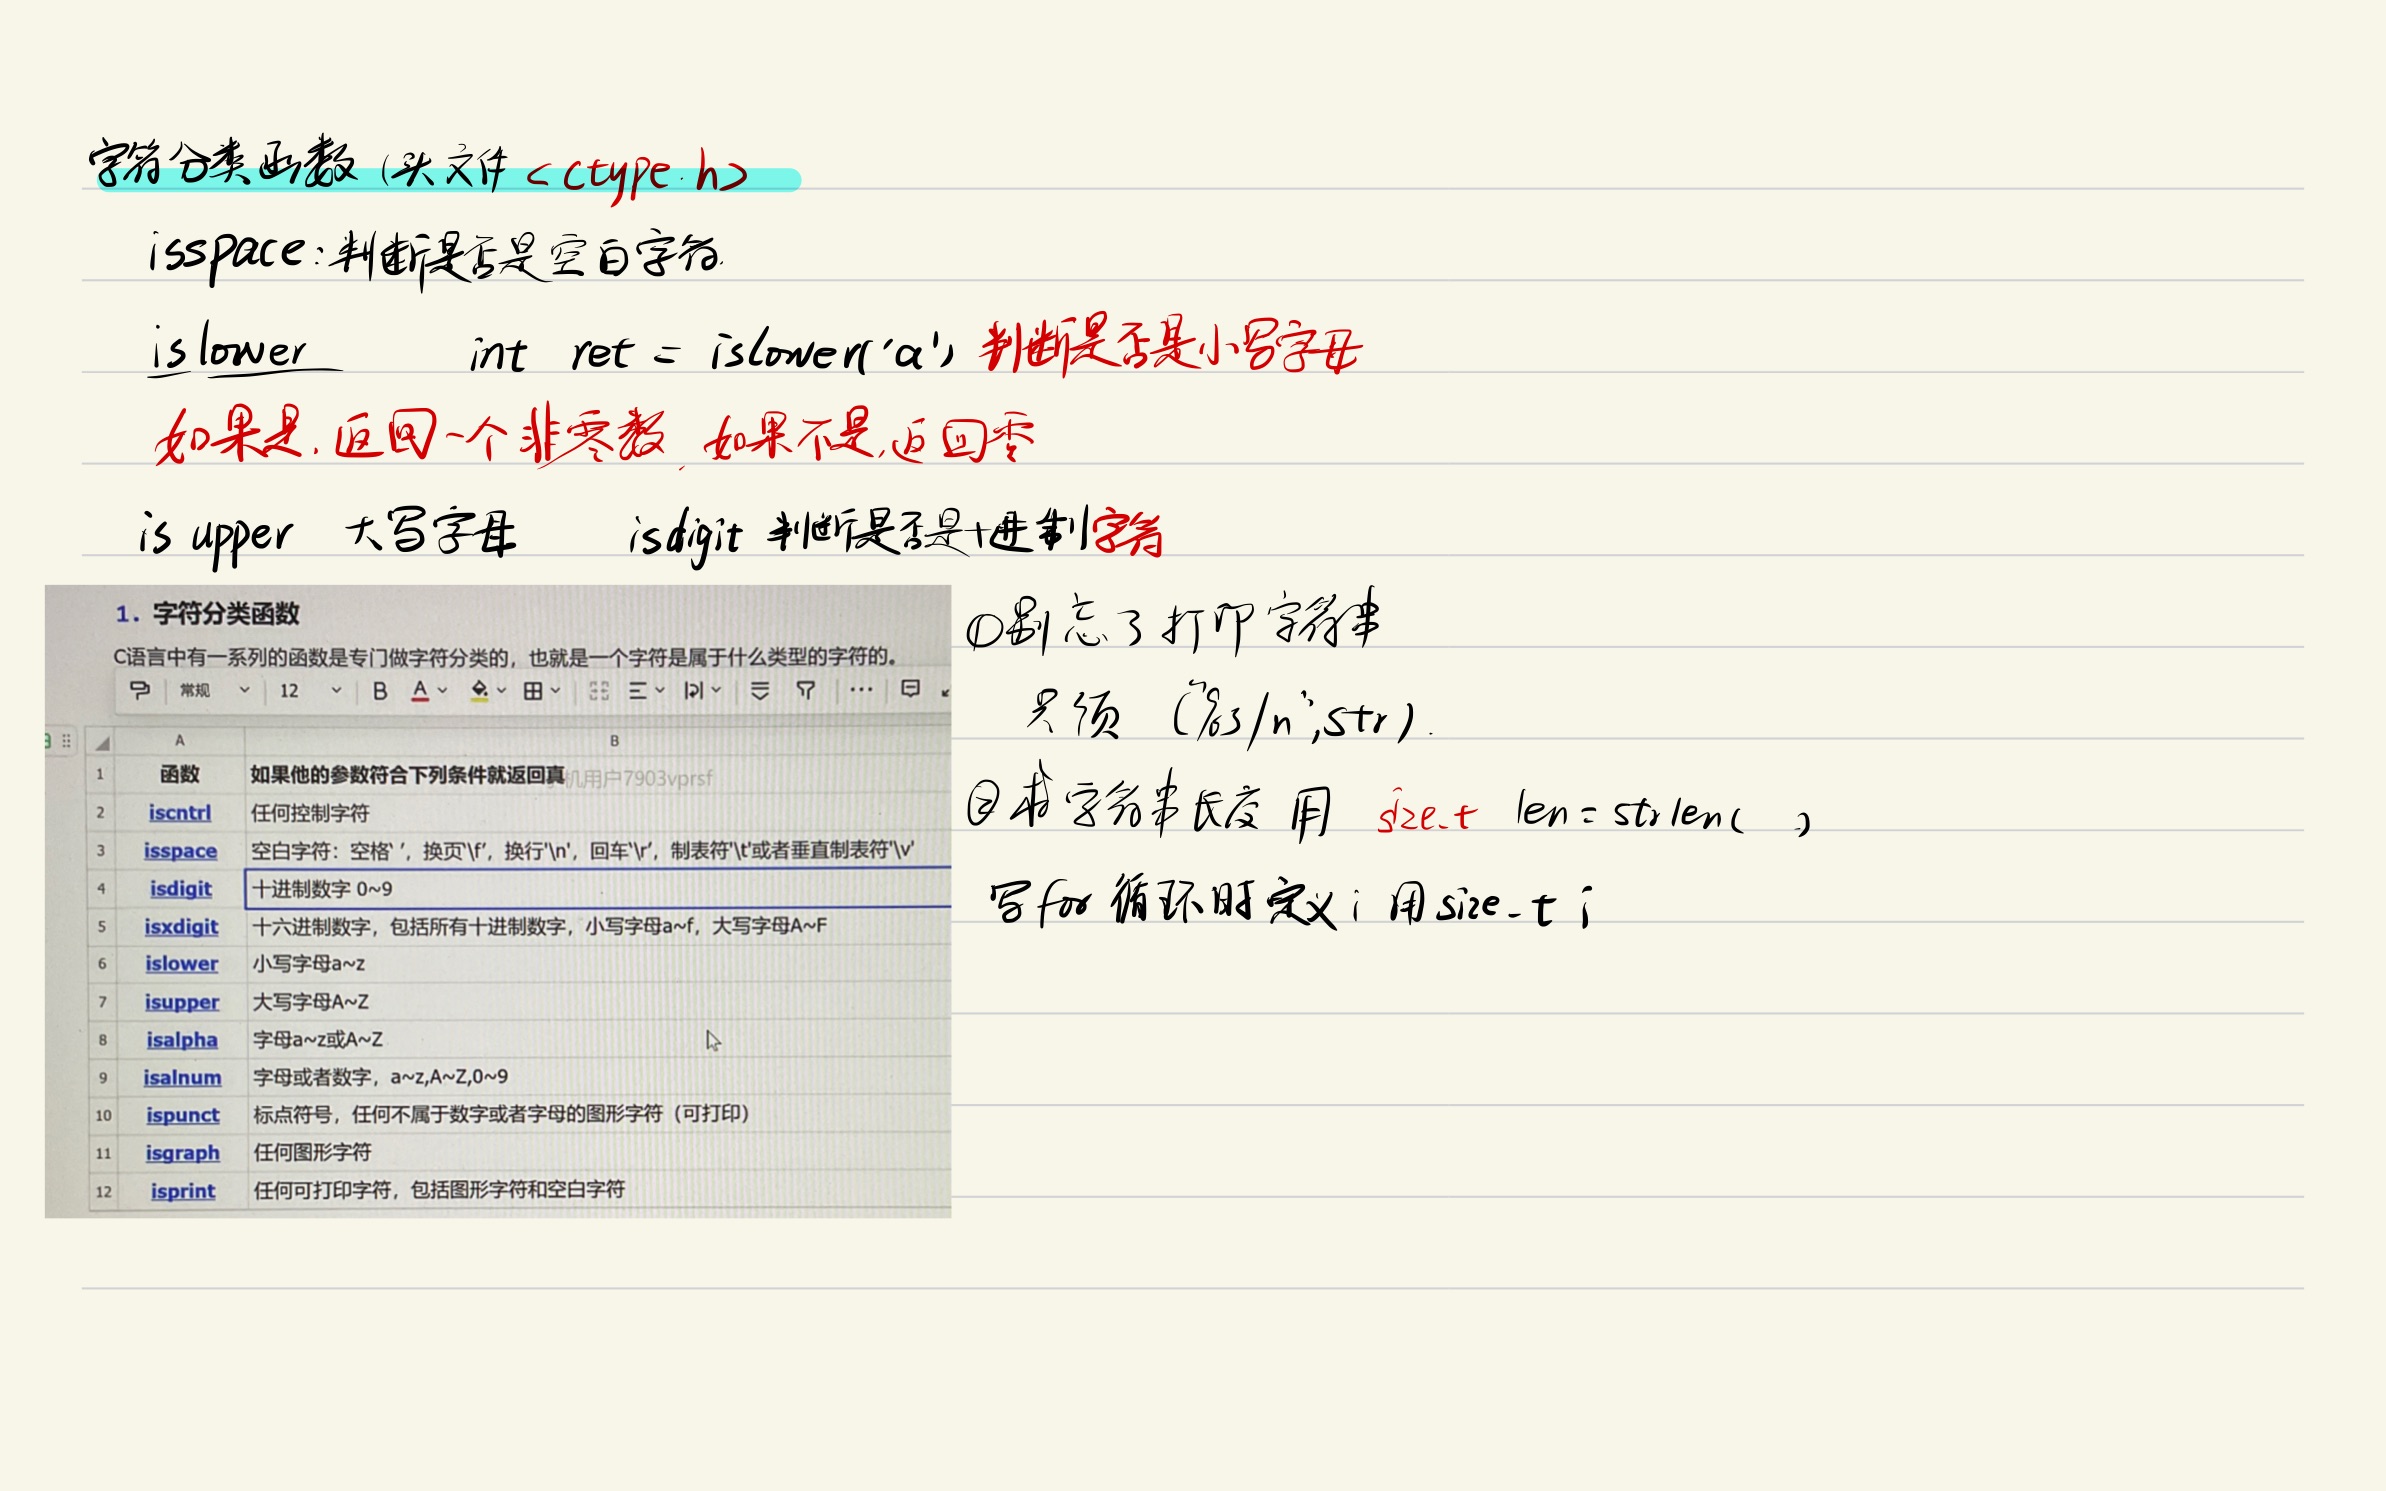 字符分类函数（头文件 <ctype.h>
isspace:判断是否是空白字符.
islower int ret = islower('a') 判断是否是小写字母
如果是,返回一个非零数,如果不是,返回零
is upper 大写字母 isdigit 判断是否是十进制字符
1. 字符分类函数
C语言中有一系列的函数是专门做字符分类的，也就是一个字符是属于什么类型的字符的。
常规 12 B A
A B
1 函数 如果他的参数符合下列条件就返回真
机用户7903vprsf
2 iscntrl 任何控制字符
3 isspace 空白字符：空格' '，换页'\f'，换行'\n'，回车'\r'，制表符'\t'或者垂直制表符'\v'
4 isdigit 十进制数字 0~9
5 isxdigit 十六进制数字，包括所有十进制数字，小写字母a~f，大写字母A~F
6 islower 小写字母a~z
7 isupper 大写字母A~Z
8 isalpha 字母a~z或A~Z
9 isalnum 字母或者数字，a~z,A~Z,0~9
10 ispunct 标点符号，任何不属于数字或者字母的图形字符（可打印）
11 isgraph 任何图形字符
12 isprint 任何可打印字符，包括图形字符和空白字符
①别忘了打印字符串
只须 ("%s/n",str).
②求字符串长度 用 size_t len = strlen( )
写for循环时定义i 用size_t i